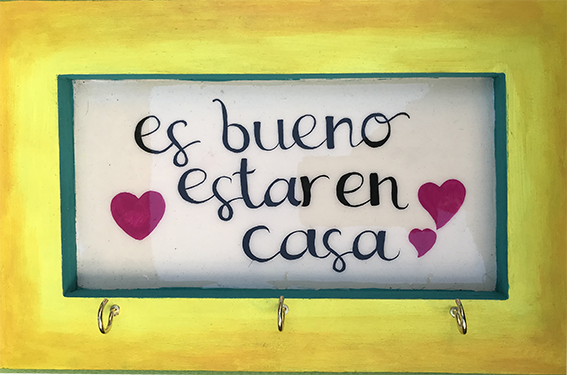 es bueno
estar en
casa